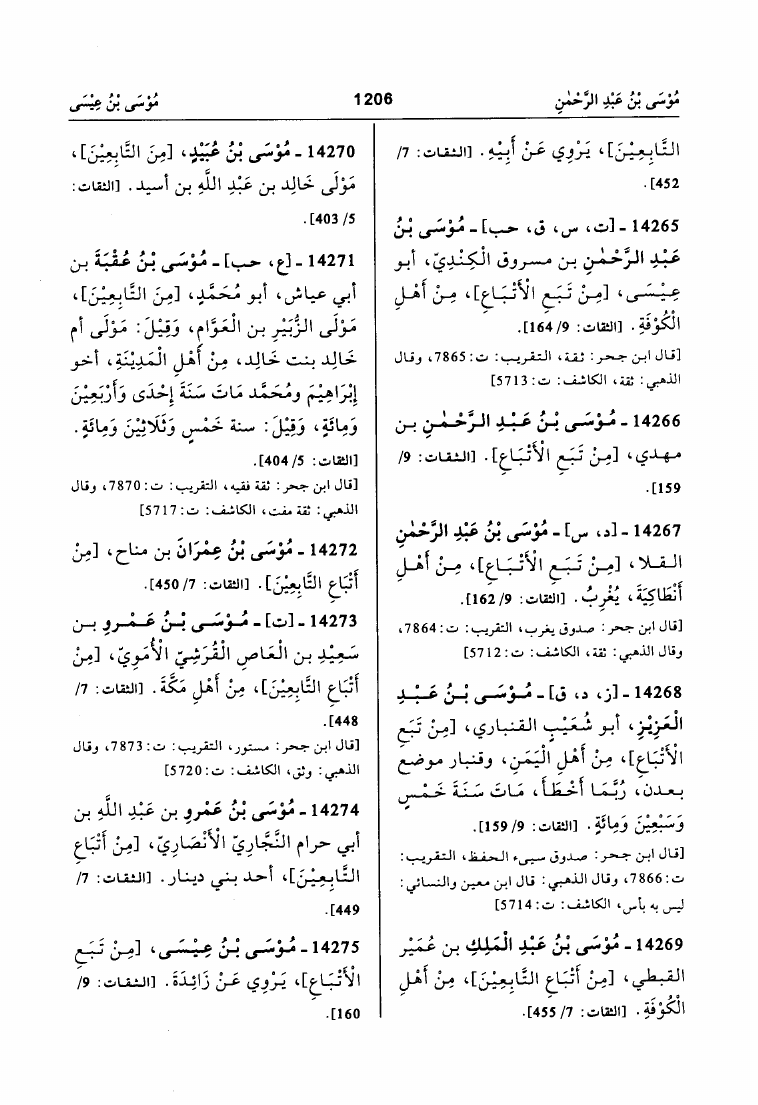 مُوْسَى بْنُ عَبْدِ الرَّحْمٰنِ
1206
مُوْسَى بْنُ عِيْسَى
التَّابِعِيْنَ]، يَرْوِي عَنْ أَبِيْهِ. [الثقات: 7/
452].
14265 ـ [ت، س، ق، حب] ـ مُوْسَى بْنُ
عَبْدِ الرَّحْمٰنِ بن مسروق الْكِنْدِيّ، أبو
عِيْسَى، [مِنْ تَبَعِ الْأَتْبَاعِ]، مِنْ أَهْلِ
الْكُوْفَةِ. [الثقات: 9/ 164].
[قال ابن حجر: ثقة، التقريب: ت: 7865، وقال
الذهبي: ثقة، الكاشف: ت: 5713]
14266 ـ مُوْسَى بْنُ عَبْدِ الرَّحْمٰنِ بن
مهدي، [مِنْ تَبَعِ الْأَتْبَاعِ]. [الثقات: 9/
159].
14267 ـ [د، س] ـ مُوْسَى بْنُ عَبْدِ الرَّحْمٰنِ
القلا، [مِنْ تَبَعِ الْأَتْبَاعِ]، مِنْ أَهْلِ
أَنْطَاكِيَّةَ، يُغْرِبُ. [الثقات: 9/ 162].
[قال ابن حجر: صدوق يغرب، التقريب: ت: 7864،
وقال الذهبي: ثقة، الكاشف: ت: 5712]
14268 ـ [ز، د، ق] ـ مُوْسَى بْنُ عَبْدِ
الْعَزِيْزِ، أبو شُعَيْبٍ القنباري، [مِنْ تَبَعِ
الْأَتْبَاعِ]، مِنْ أَهْلِ الْيَمَنِ، وقنبار موضع
بعدن، رُبَّمَا أَخْطَأَ، مَاتَ سَنَةَ خَمْسٍ
وَسَبْعِيْنَ وَمِائَةٍ. [الثقات: 9/ 159].
[قال ابن حجر: صدوق سيىء الحفظ، التقريب:
ت: 7866، وقال الذهبي: قال ابن معين والنسائي:
ليس به بأس، الكاشف: ت: 5714]
14269 ـ مُوْسَى بْنُ عَبْدِ الْمَلِكِ بن عُمَيْرٍ
القبطي، [مِنْ أَتْبَاعِ التَّابِعِيْنَ]، مِنْ أَهْلِ
الْكُوْفَةِ. [الثقات: 7/ 455].
14270 ـ مُوْسَى بْنُ عُبَيْدٍ، [مِنَ التَّابِعِيْنَ]،
مَوْلَى خَالِد بن عَبْد اللَّهِ بن أسيد. [الثقات:
5/ 403].
14271 ـ [ع، حب] ـ مُوْسَى بْنُ عُقْبَةَ بن
أبي عياش، أبو مُحَمَّدٍ، [مِنَ التَّابِعِيْنَ]،
مَوْلَى الزُّبَيْر بن الْعَوَّامِ، وَقِيْلَ: مَوْلَى أم
خالد بنت خَالِد، مِنْ أَهْلِ الْمَدِيْنَةِ، أخو
إِبْرَاهِيْمَ ومُحَمَّد مَاتَ سَنَةَ إِحْدَى وَأَرْبَعِيْنَ
وَمِائَةٍ، وَقِيْلَ: سنة خَمْسٍ وَثَلَاثِيْنَ وَمِائَةٍ.
[الثقات: 5/ 404].
[قال ابن حجر: ثقة فقيه، التقريب: ت: 7870، وقال
الذهبي: ثقة مفت، الكاشف: ت: 5717]
14272 ـ مُوْسَى بْنُ عِمْرَانَ بن مناح، [مِنْ
أَتْبَاعِ التَّابِعِيْنَ]. [الثقات: 7/ 450].
14273 ـ [ت] ـ مُوْسَى بْنُ عَمْرِو بن
سَعِيْدِ بن الْعَاصِ الْقُرَشِيّ الْأُمَوِيّ، [مِنْ
أَتْبَاعِ التَّابِعِيْنَ]، مِنْ أَهْلِ مَكَّةَ. [الثقات: 7/
448].
[قال ابن حجر: مستور، التقريب: ت: 7873، وقال
الذهبي: وثق، الكاشف: ت: 5720]
14274 ـ مُوْسَى بْنُ عَمْرِو بن عَبْدِ اللَّهِ بن
أبي حرام النَّجَّارِيّ الْأَنْصَارِيّ، [مِنْ أَتْبَاعِ
التَّابِعِيْنَ]، أحد بني دينار. [الثقات: 7/
449].
14275 ـ مُوْسَى بْنُ عِيْسَى، [مِنْ تَبَعِ
الْأَتْبَاعِ]، يَرْوِي عَنْ زَائِدَةَ. [الثقات: 9/
160].